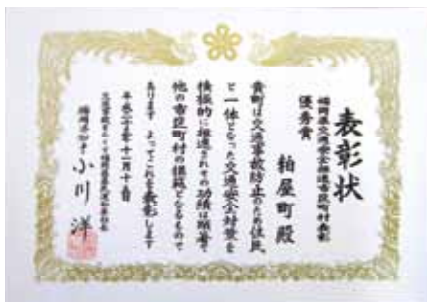 表彰状
福岡県交通安全推進市区町村表彰
優秀賞
粕屋町殿
貴町は交通事故防止のため住民
と一体となった交通安全対策を
積極的に推進されその功績は顕著で
他の市区町村の模範となるもので
あります よってこれを表彰します
平成二十 年十一月十 日
福岡県知事 小川洋